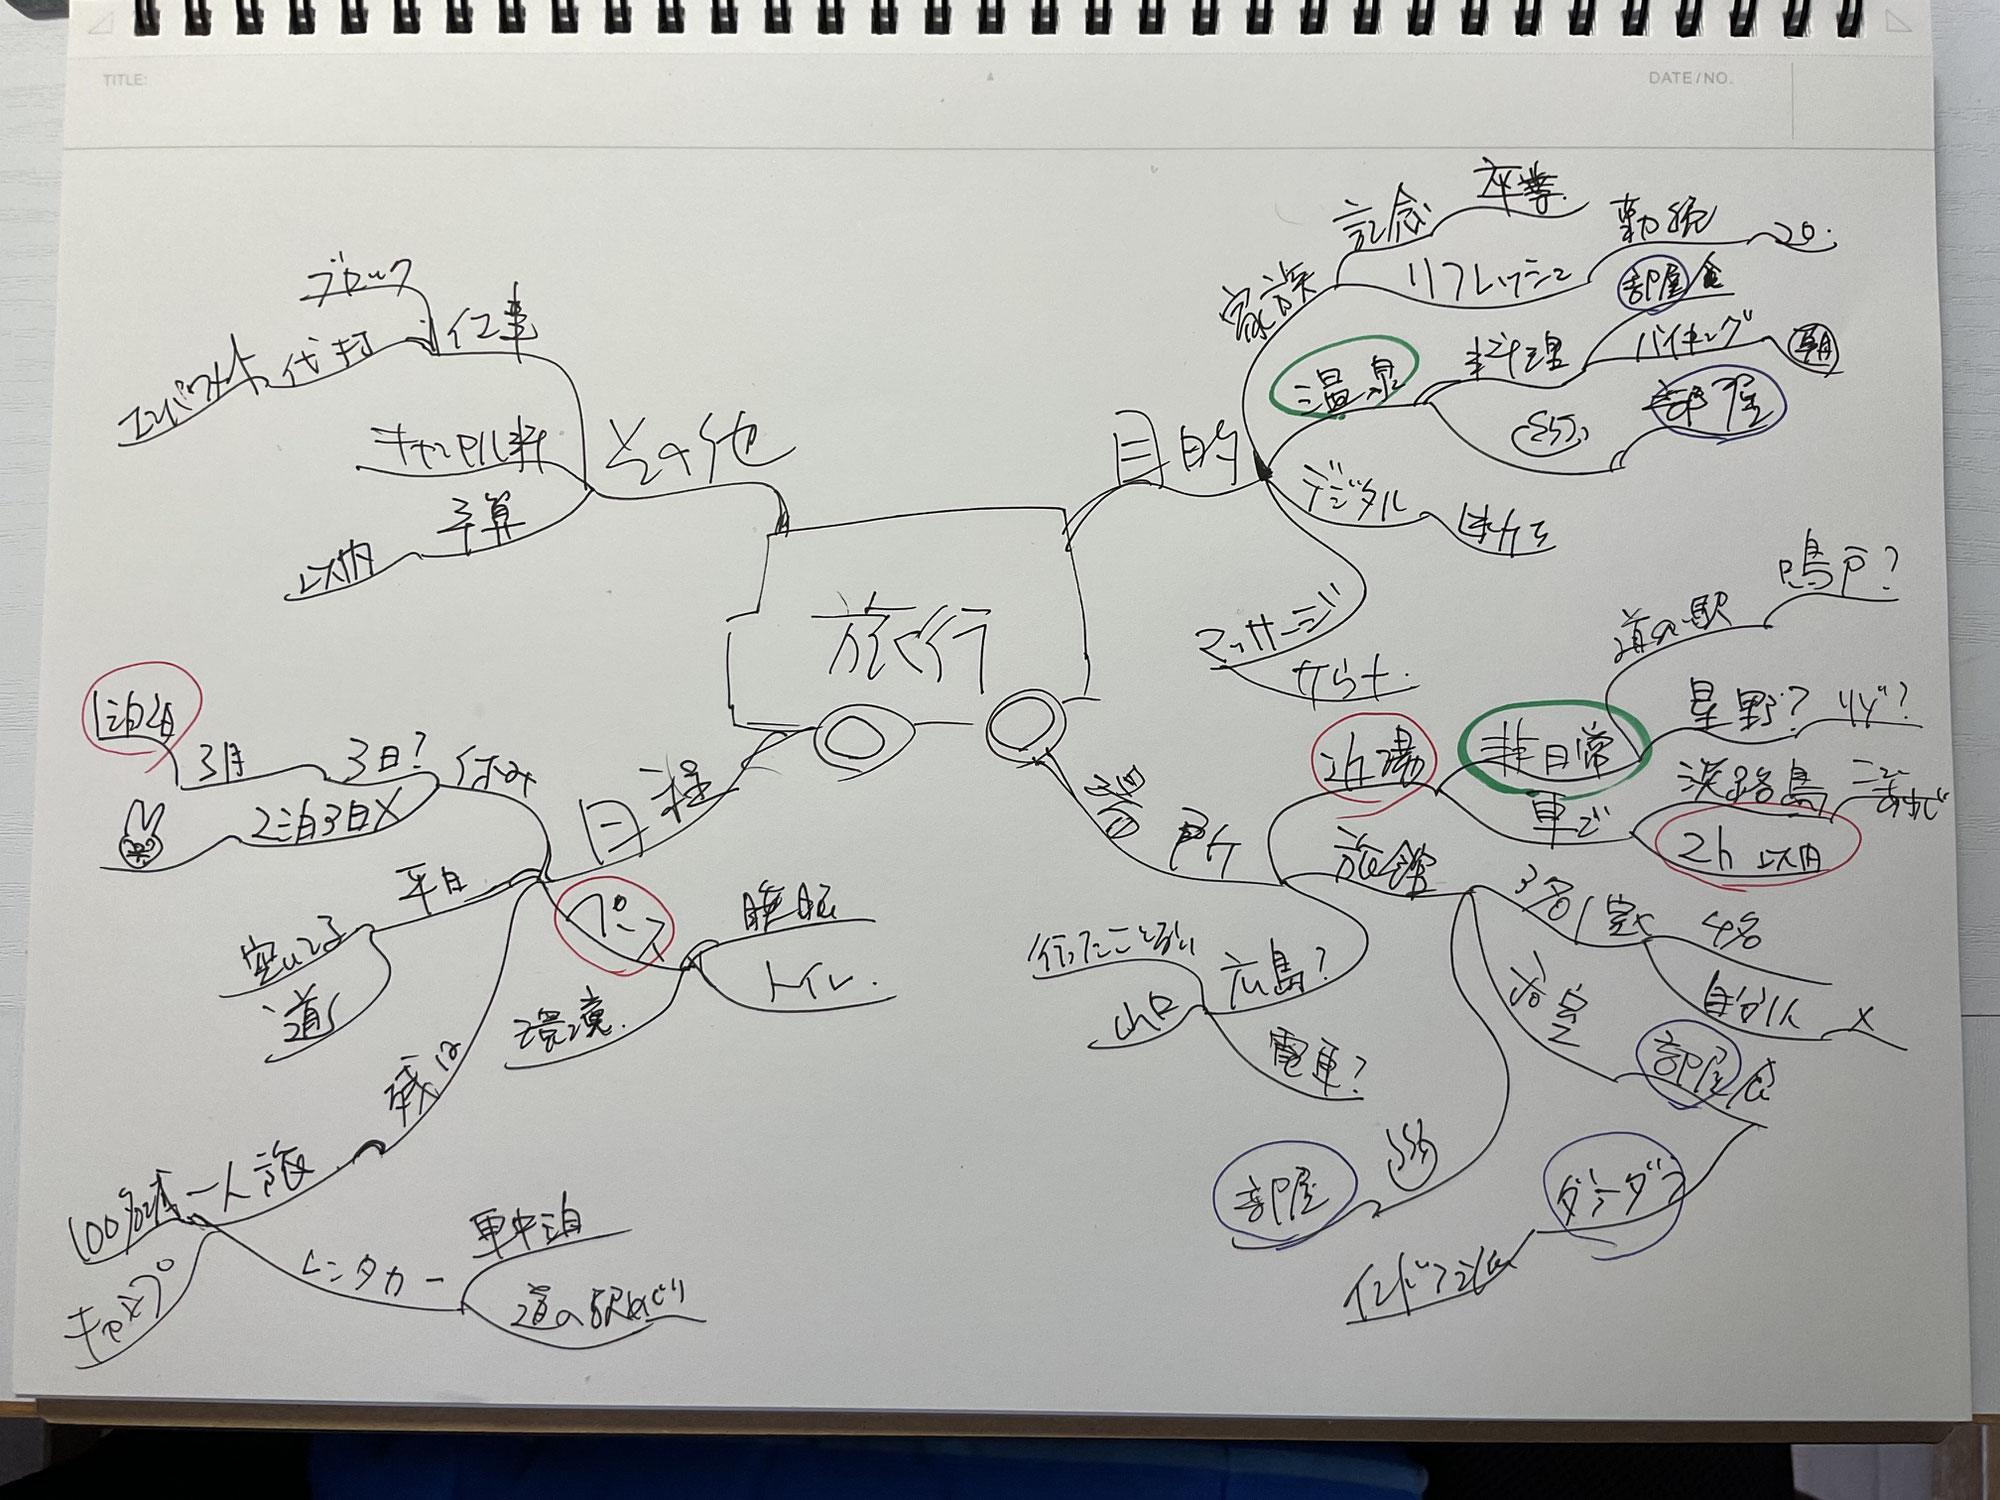 TITLE:
DATE/NO.
旅行
目的
家族
記念
卒業
リフレッシュ
勤続
20.
温泉
料理
部屋食
バイキング
朝
部屋
デジタル
マッサージ
場所
近場
非日常
道の駅
鳴戸?
星野?
車で
淡路島
2h 以内
旅館
3名1室
4名
×
浴室
部屋食
部屋
広島?
行ったことない
山口
電車?
日程
休み
3日?
3月
1泊2日
2泊3日×
平日
空いてる
道
ペース
睡眠
トイレ.
環境.
残は
一人旅
キャンプ
レンタカー
車中泊
道の駅めぐり
その他
仕事
ブロック
代打
キャンセル料
予算
以内